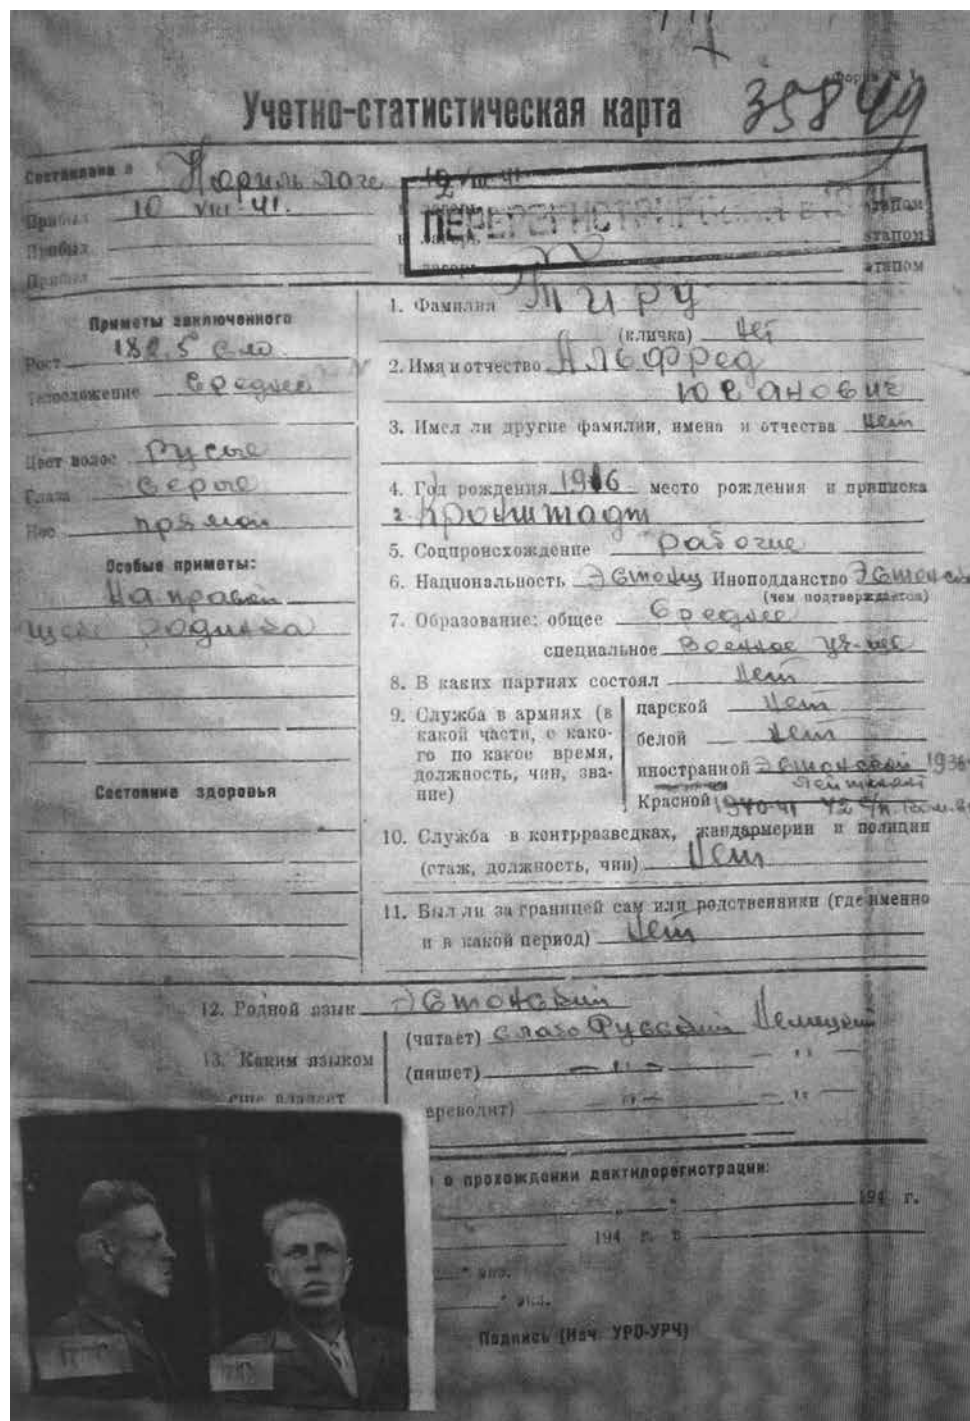 Форма № 1
35849
Учетно-статистическая карта
Составлена в Норильлаге 19 VIII 41.
Прибыл 10 VIII 41. этапом
ПЕРЕРЕГИСТРИРОВАН
Прибыл в лагерь этапом
Прибыл в лагерь этапом
Приметы заключенного
Рост 182,5 см
Телосложение Среднее
Цвет волос Русые
Глаза Серые
Нос прямой
Особые приметы:
На правой
щеке родинка
Состояние здоровья
1. Фамилия Тиру
(кличка) Нет
2. Имя и отчество Альфред
Юганович
3. Имел ли другие фамилии, имена и отчества Нет
4. Год рождения 1916 место рождения и прописка
г. Кронштадт
5. Соцпроисхождение Рабочие
6. Национальность Эстонец Иноподданство
(чем подтверждается)
7. Образование: общее Среднее
специальное Военное уч-ще
8. В каких партиях состоял Нет
9. Служба в армиях (в
какой части, с како-
го по какое время,
должность, чин, зва-
ние)
царской Нет
белой Нет
иностранной Эстонской 1936-
лейтенант
Красной 1940-41
10. Служба в контрразведках, жандармерии и полиции
(стаж, должность, чин) Нет
11. Был ли за границей сам или родственники (где именно
и в какой период) Нет
12. Родной язык Эстонский
13. Каким языком
еще владеет
(читает) слабо Русский Немецкий
(пишет) — " — — " —
(переводит) — " — — " —
о прохождении дактилорегистрации:
194 г.
194 г. в
" экз.
" экз.
Подпись (Нач. УРО-УРЧ)